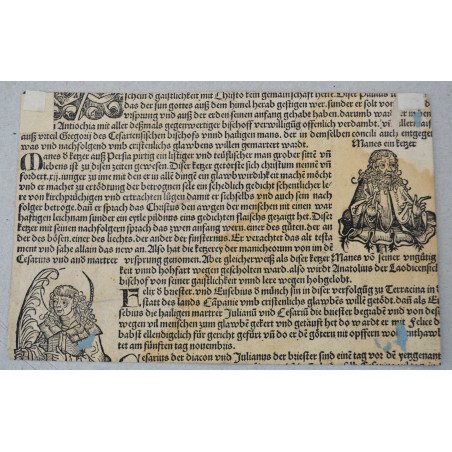 schein d gaistlichkeit mit Christo kein gemainschafft hette. Diser Paulus
das der sun gottes auß dem himel herab gestigen wer. sunder er solt vor
vrsprung vnd auß der erden seinen anfang gehabt haben. darumb ward er in
Antiochia mit aller deßmals gegenwertiger bischoff verwilligūg offenlich verdambt.
auß vrteil Gregorij des Cesariensischen bischoffs vnd haillgisten mans, der in demselben concili auch entgegen
was vnd nachuolgend vmb cristenlichs glawbens willen gemartert wardt.
Manes ein ketzer
Manes d ketzer auß Persia pürtig ein listiger vnd teüflischer man grober sittē vñ
lebens ist zu disen zeiten gewesen. Diser ketzer getorste sich christum nennē vñ
fordert .xij. iunger zu ime mit den er in all dinge ein glawbwirdikeit machē möcht
vnd er machet zu ertödtung der betrognen sele ein schedlich gedicht schentlicher le
re von kirchprüchigen vnd ertrachten lügen damit er sichselbs vnd auch ein sein nach
folger betroge. dañ er sprach das Christus den awgen der menschen nit einen war
hafftigen leichnam sunder ein eytle pildnus eins gedichten flaischs gezaigt het. Diser
ketzer mit seinen nachfolgern sprach das zwen anfang wern. einer des gůten. der an
der des bösen. einer des liechts. der ander der finsternus. Er verachtet das alt testa
ment vnd hiese allain das new an. Also hat die ketzerey der manicheorum von im den
vrsprung genomen. Aber gleicherweiß als diser ketzer Manes võ seiner vngütig
Cesarius vnd and martrer
keit vnnd hohfart wegen gescholten ward. also wirdt Anatolus der Laodicensisch
bischof von seiner gaistlichkeit vnnd lere wegen hohgelobt.
Felix d briester vnd Eusebius d münch sin in diser verfolgūg zu Terracina in
stat des lands Cãpanie vmb cristenlichs glawbē willē getödt. dañ als Eu
sebius die hailigen martrer Julianū vnd Cesariū die briester begrabē vnd von des
wegen vil menschen zum glawbē gekert vnd getaüft het do ward er mit Felice d
babst ellendigclich für gericht gefürt vñ do er dē göttern nit opffern wolt
tet am fünften tag nouembris.
Cesarius der diacon vnd Julianus der briester sind einē tag vor dē vergenante